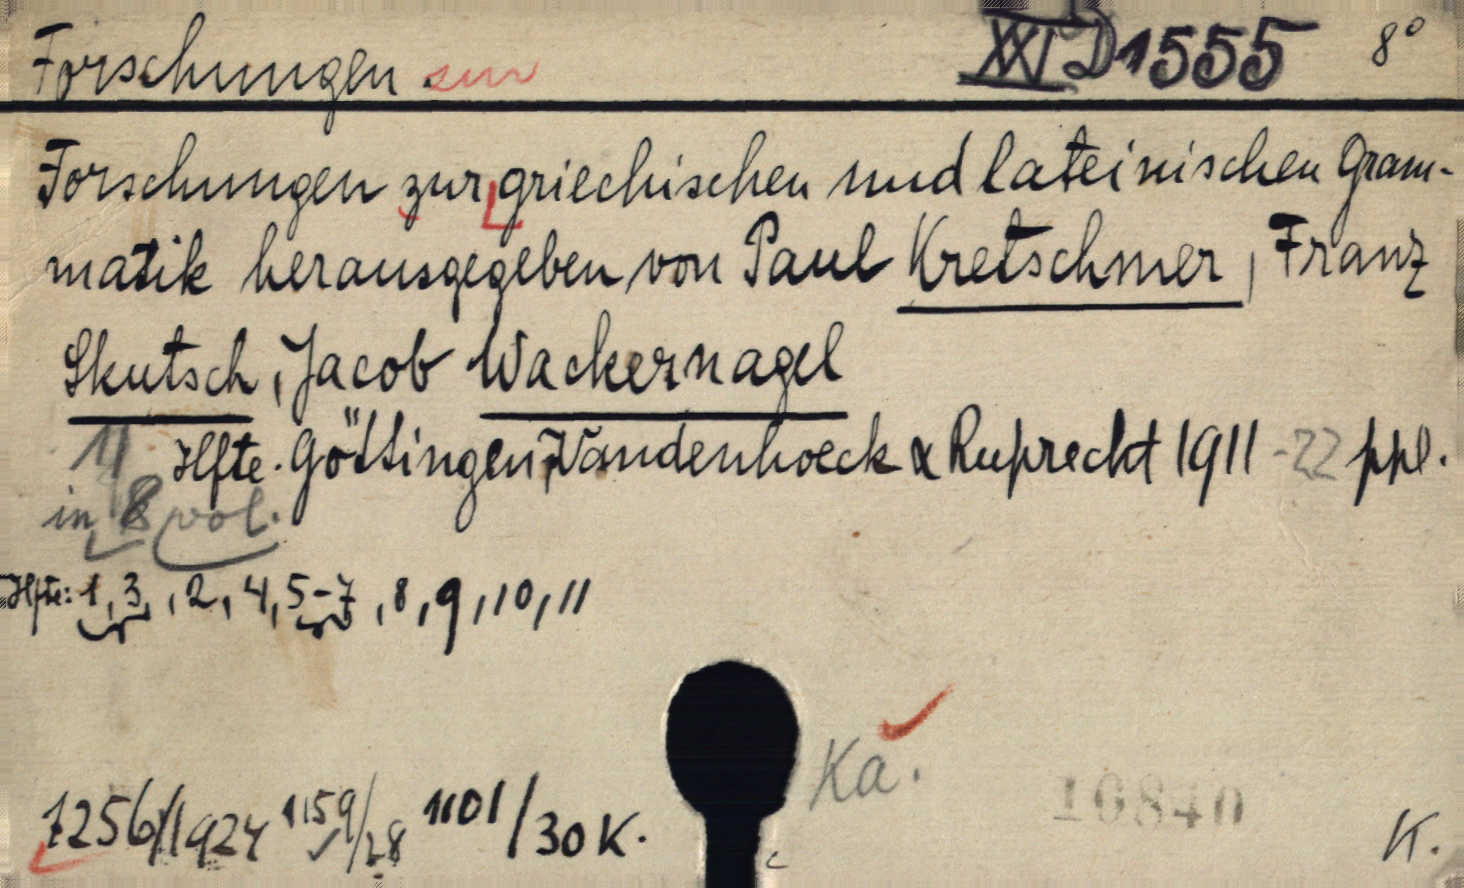 Forschungen. zur XXI D 1555 8°
Forschungen zur griechischen und lateinischen Gram-
matik herausgegeben von Paul Kretschmer, Franz
Skutsch, Jacob Wackernagel
11 Hfte. Göttingen, Vandenhoeck & Ruprecht 1911-22 ppl.
in 8 vol.
Hfte: 1, 3, , 2, 4, 5-7, 8, 9, 10, 11
Ka.
7256/1924 1159/28 1101/30 K. 10840 K.